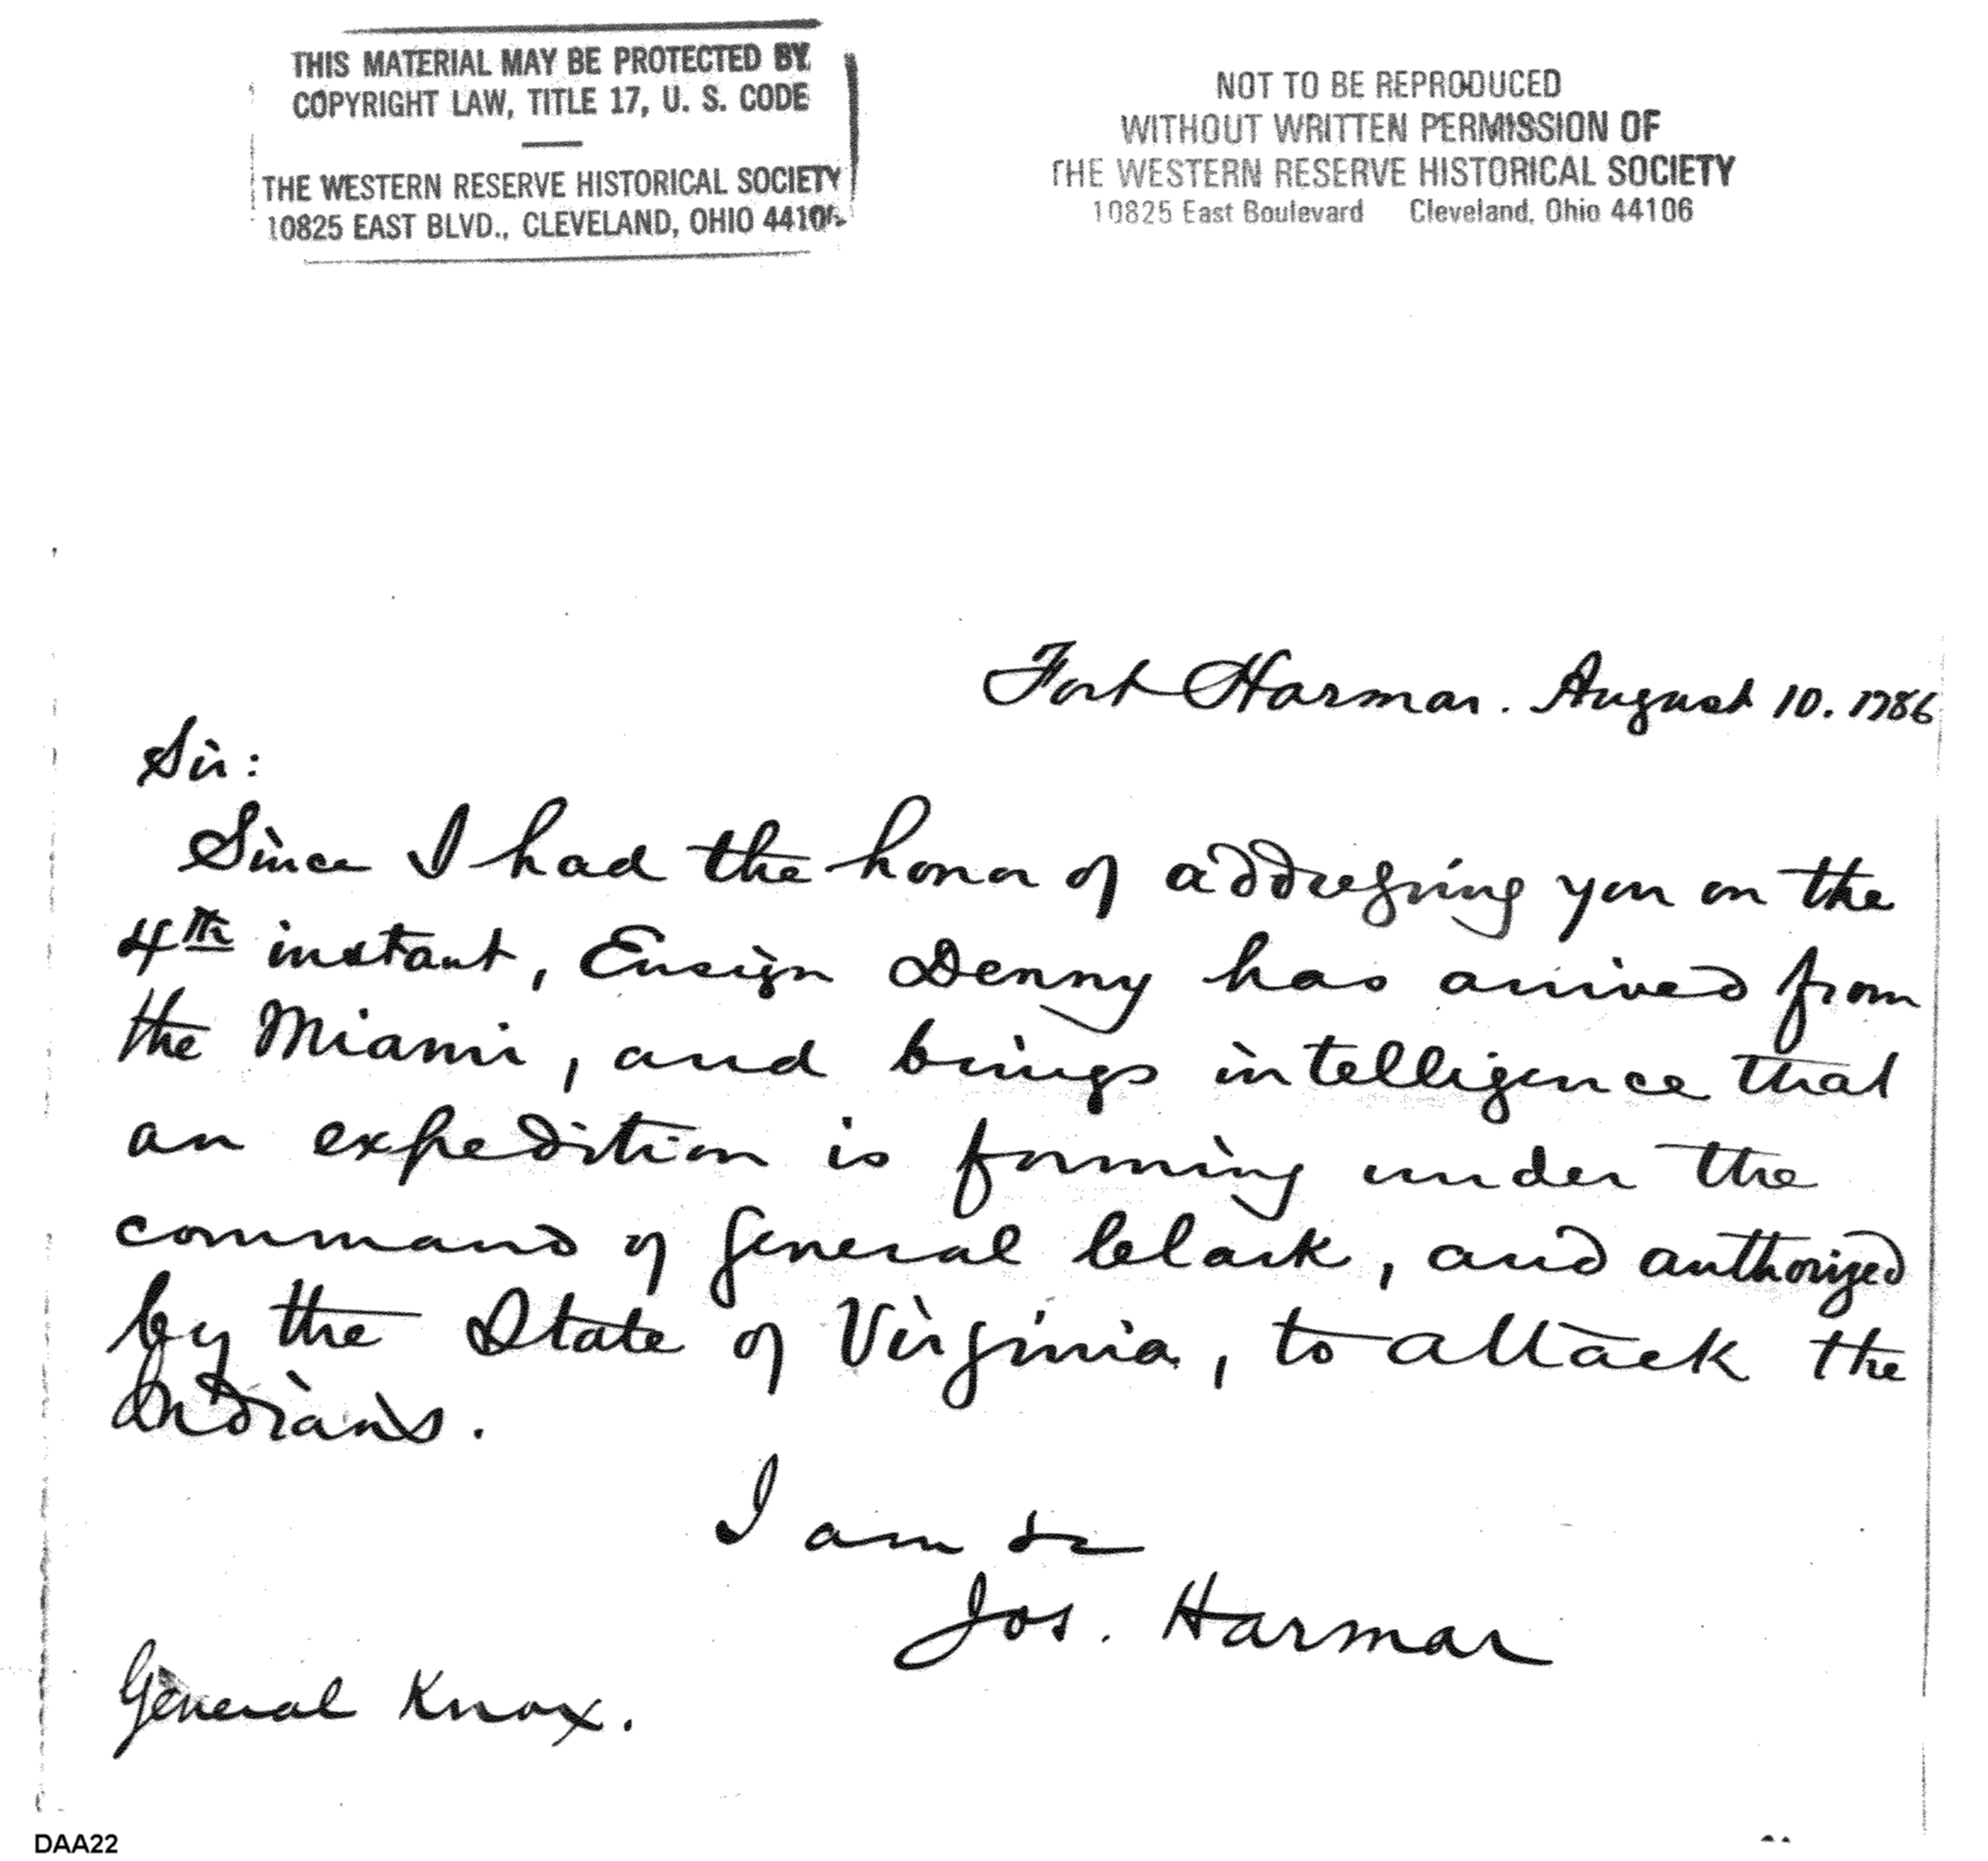 THIS MATERIAL MAY BE PROTECTED BY
COPYRIGHT LAW, TITLE 17, U. S. CODE
THE WESTERN RESERVE HISTORICAL SOCIETY
10825 EAST BLVD., CLEVELAND, OHIO 44106
NOT TO BE REPRODUCED
WITHOUT WRITTEN PERMISSION OF
THE WESTERN RESERVE HISTORICAL SOCIETY
10825 East Boulevard Cleveland, Ohio 44106
Fort Harmar. August 10. 1786
Sir:
Since I had the honor of addressing you on the
4th instant, Ensign Denny has arrived from
the Miami, and brings intelligence that
an expedition is forming under the
command of General Clark, and authorized
by the State of Virginia, to attack the
Indians.
I am &c
Jos. Harmar
General Knox.
DAA22